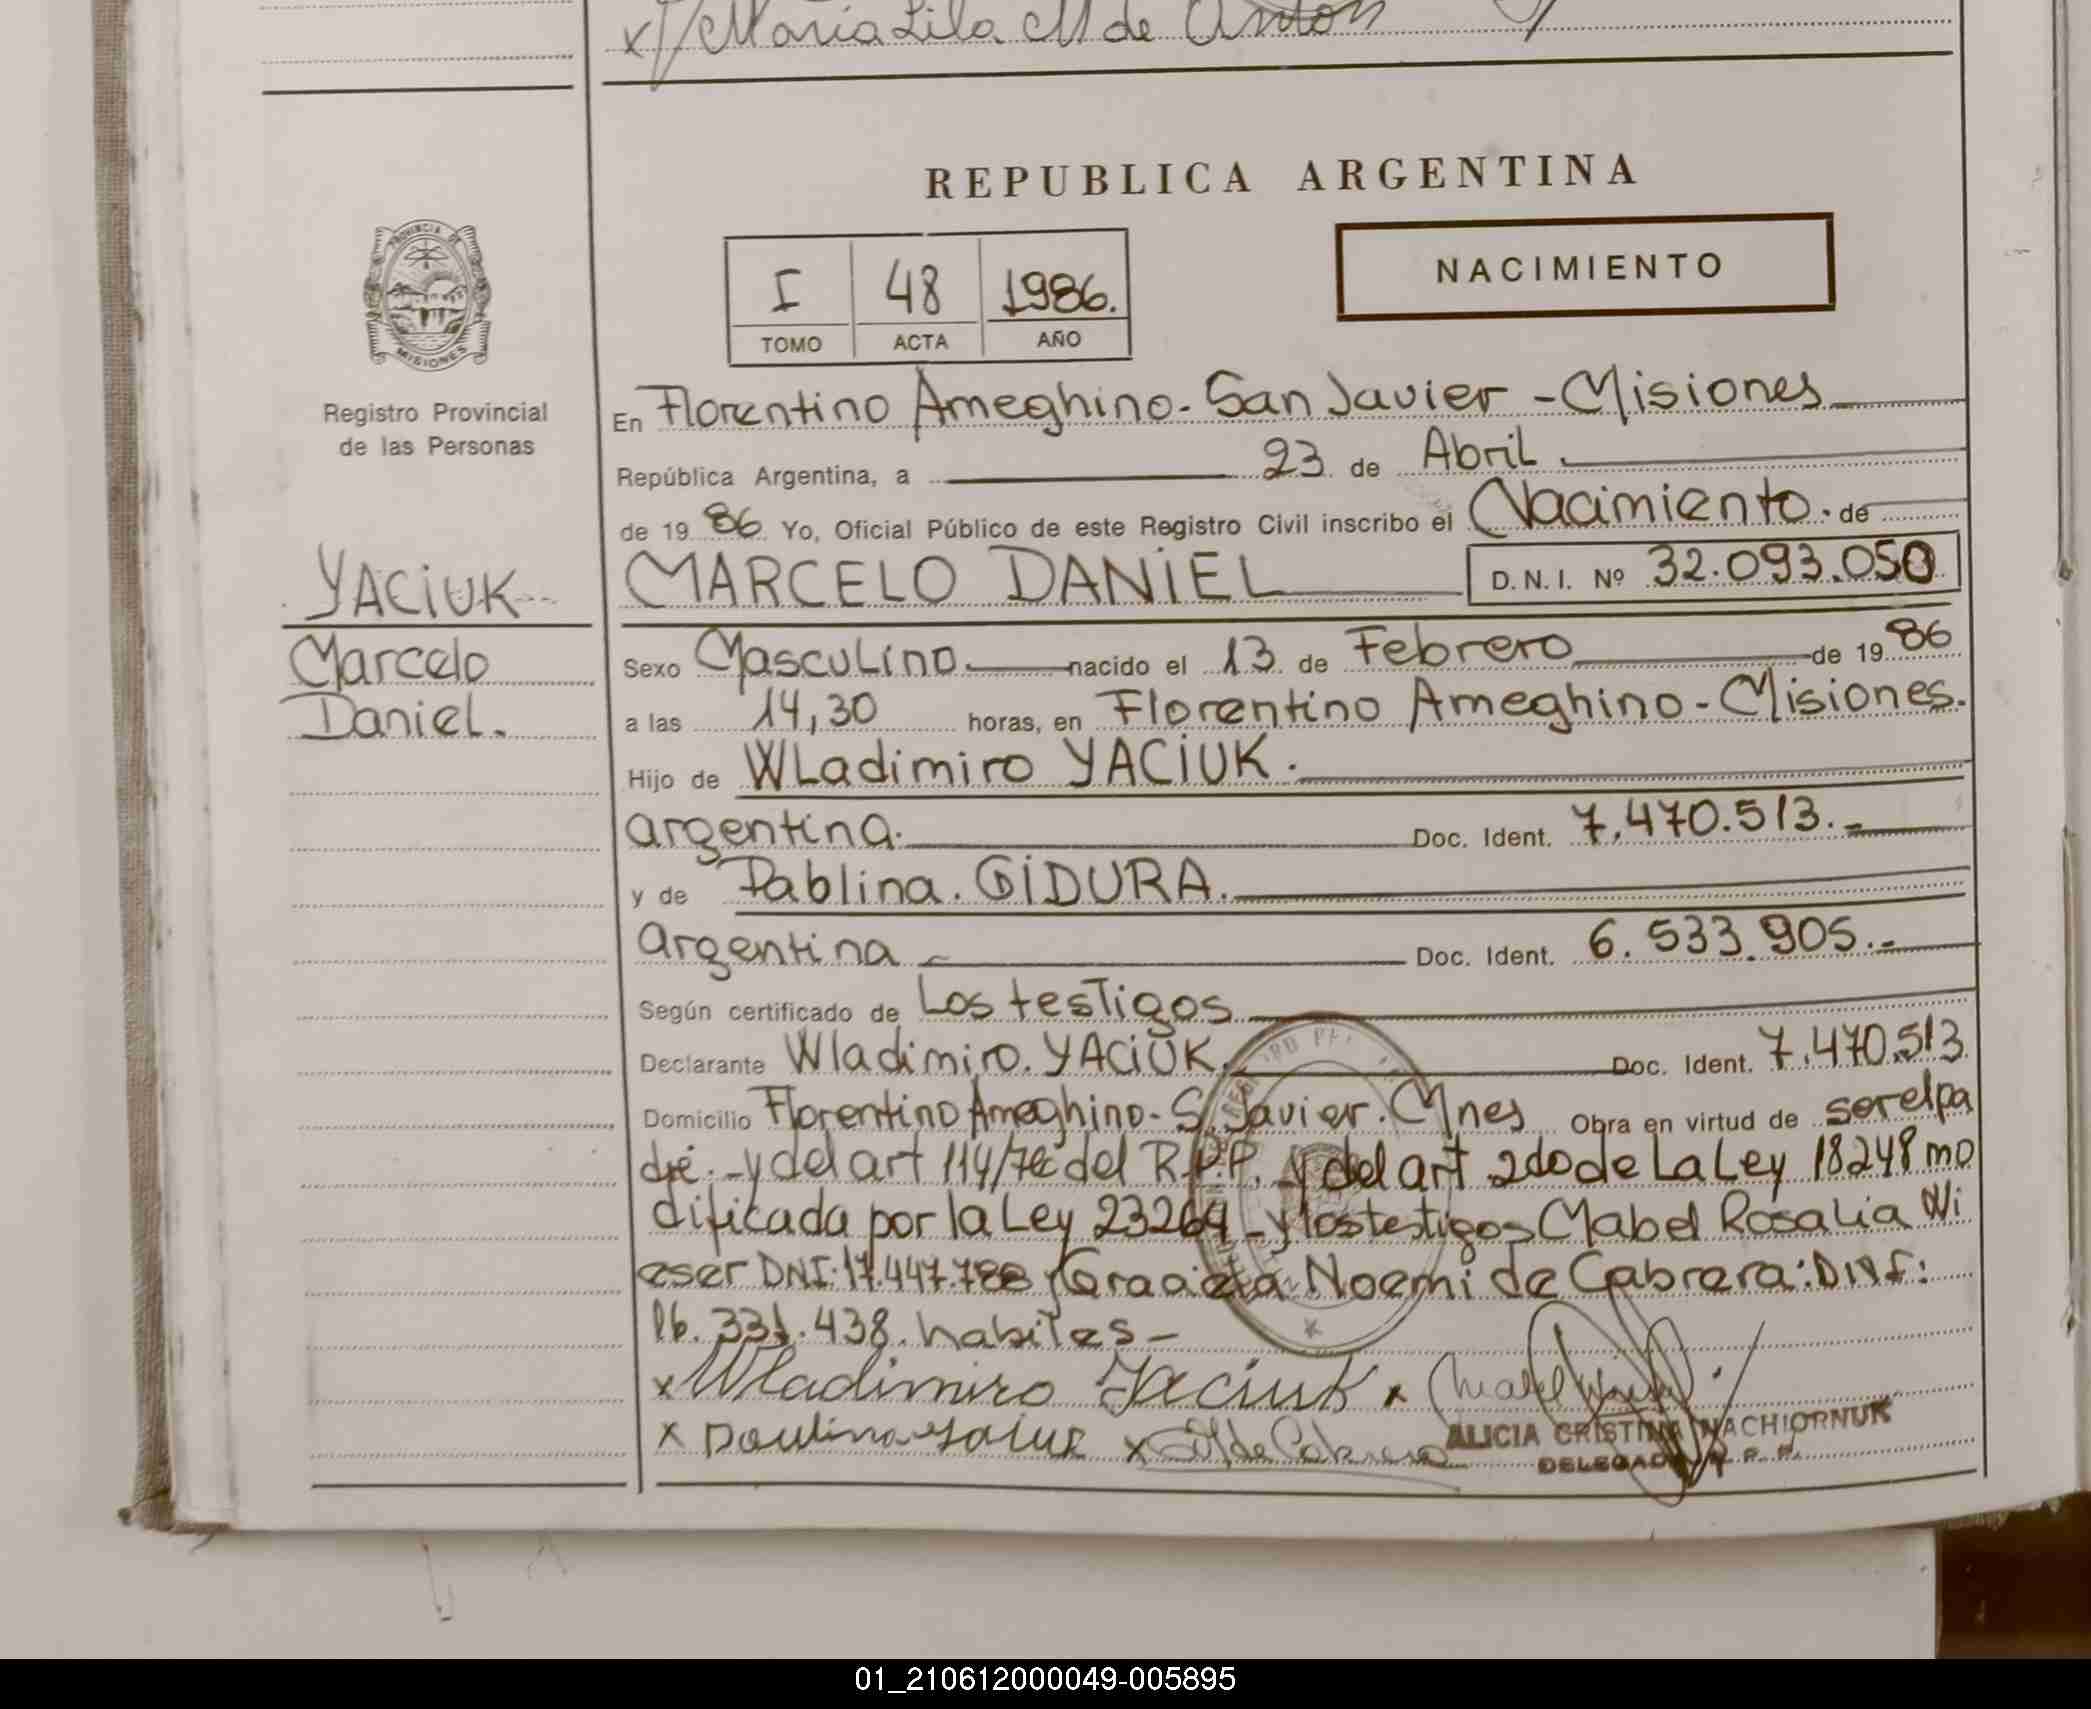 x/ María Lila M de Anton
REPUBLICA ARGENTINA
NACIMIENTO
I 48 1986.
TOMO ACTA AÑO
PROVINCIA DE MISIONES
Registro Provincial
de las Personas
YACIUK
Marcelo
Daniel.
En Florentino Ameghino - San Javier - Misiones
República Argentina, a 23 de Abril
de 1986 Yo, Oficial Público de este Registro Civil inscribo el Nacimiento. de
MARCELO DANIEL D.N.I. Nº 32.093.050
Sexo Masculino nacido el 13 de Febrero de 1986
a las 14,30 horas, en Florentino Ameghino - Misiones.
Hijo de Wladimiro YACIUK.
argentina. Doc. Ident. 7.470.513.-
y de Pablina. GIDURA.
Argentina Doc. Ident. 6.533.905.-
Según certificado de Los testigos
Declarante Wladimiro. YACIUK. Doc. Ident. 7.470.513
Domicilio Florentino Ameghino - S. Javier. Mnes Obra en virtud de ser el pa
dre. - y del art 114/ del R.P.P. y del art 2do de La Ley 18248 mo
dificada por la Ley 23264 - y los testigos Mabel Rosalia Wi
eser DNI: 17.447.788 y Graciela Noemi de Cabrera: DNI:
16.331.438. habiles -
x Wladimiro Yaciuk x Mabel
x x de Cabrera
ALICIA CRISTINA NACHIORNUK
DELEGADA R. P. P.
01_210612000049-005895